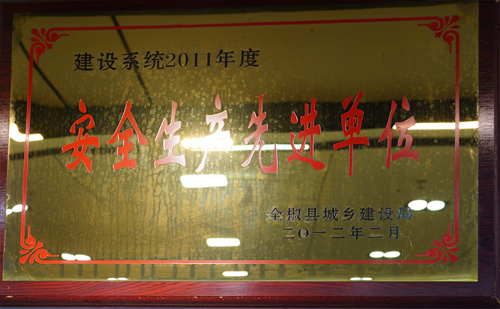 建设系统2011年度
安全生产先进单位
全椒县城乡建设局
二〇一二年二月